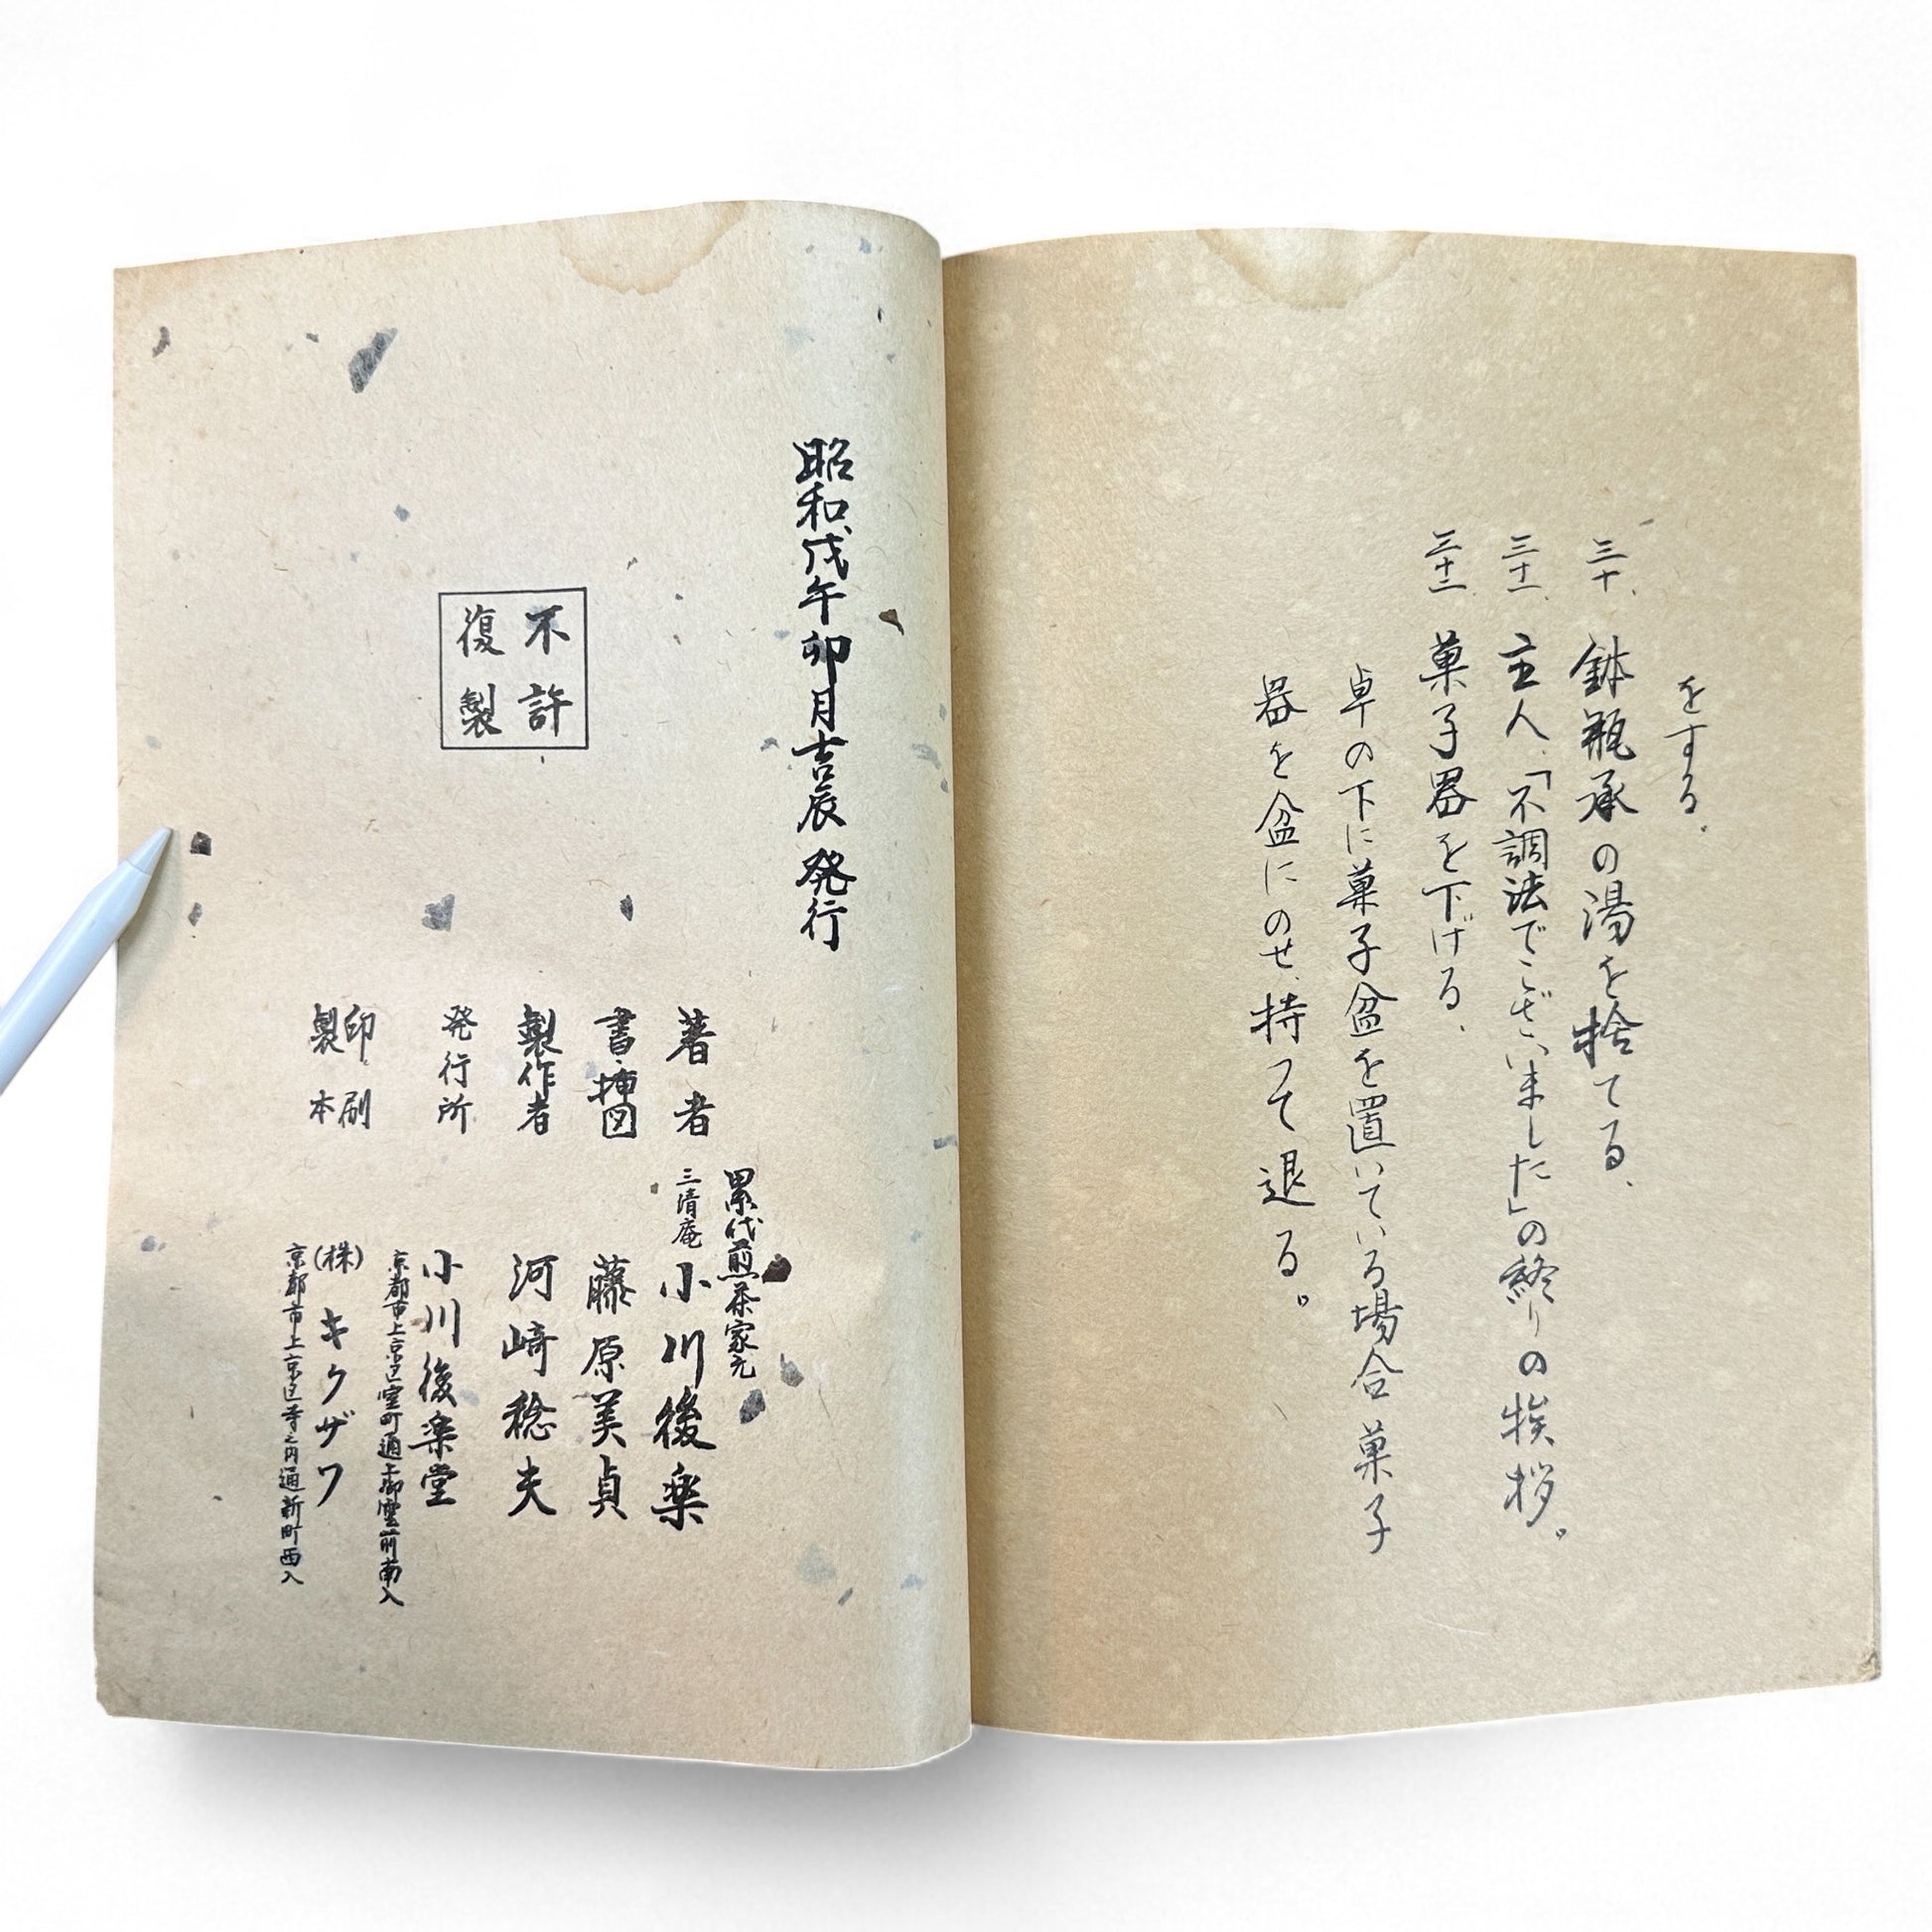 をする、
三十、鉢瓶承の湯を捨てる、
三十一、主人、「不調法でございました」の終りの挨拶。
三十二、菓子器を下げる、
卓の下に菓子盆を置いている場合菓子
器を盆にのせ、持って退る。
昭和、戊午卯月吉辰発行
不許
復製
著者 累代煎茶家元
三清庵 小川後楽
書・挿図 藤原美貞
製作者 河﨑稔夫
発行所 小川後楽堂
京都市上京区室町通上御霊前南入
印刷
製本 (株)キクザワ
京都市上京区寺之内通新町西入